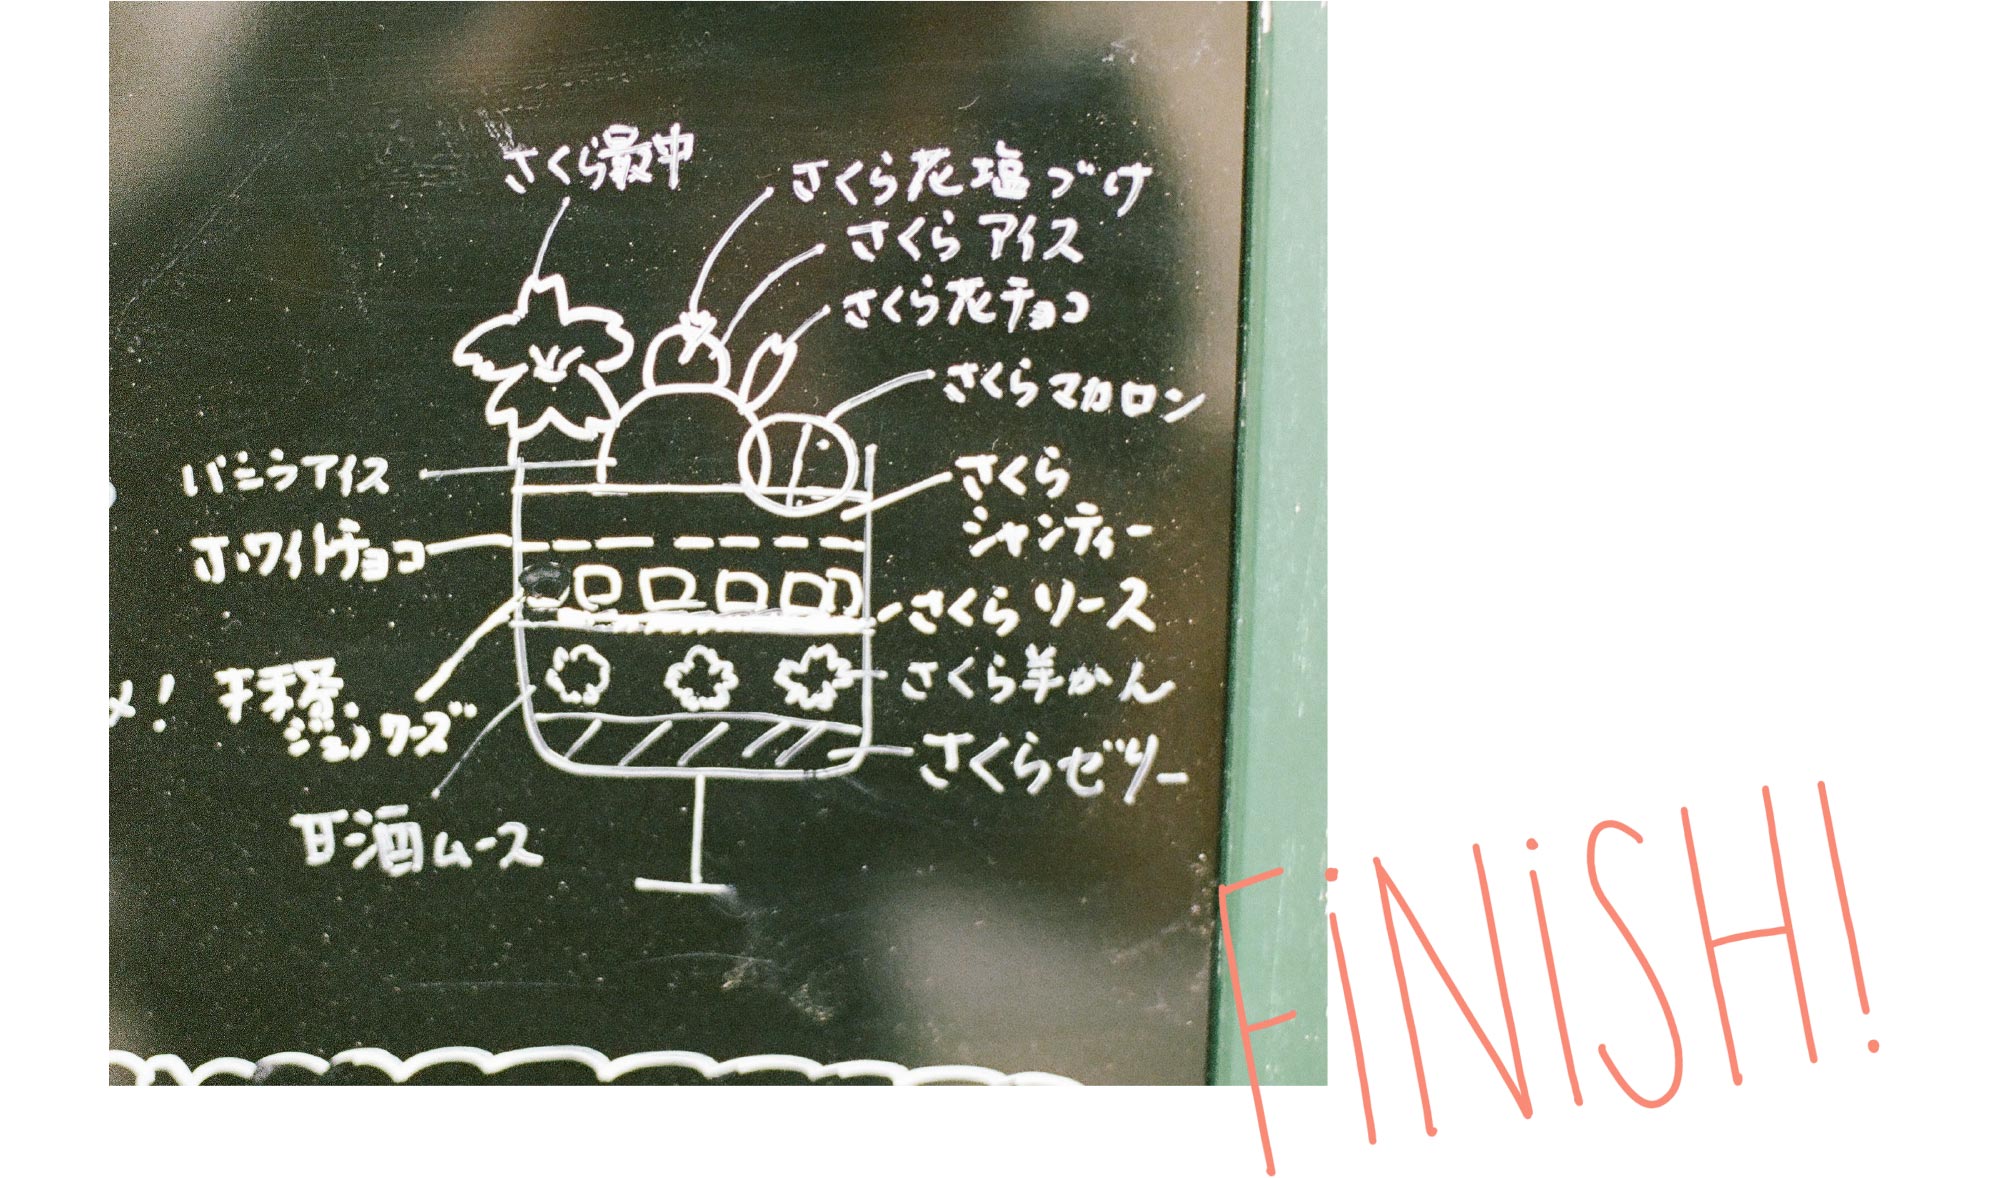 さくら最中
さくら花塩づけ
さくらアイス
さくら花チョコ
さくらマカロン
バニラアイス
さくら
シャンティー
ホワイトチョコ
さくらソース
抹茶
ジェノワーズ
さくら羊かん
さくらゼリー
甘酒ムース
メ!
FiNiSH!